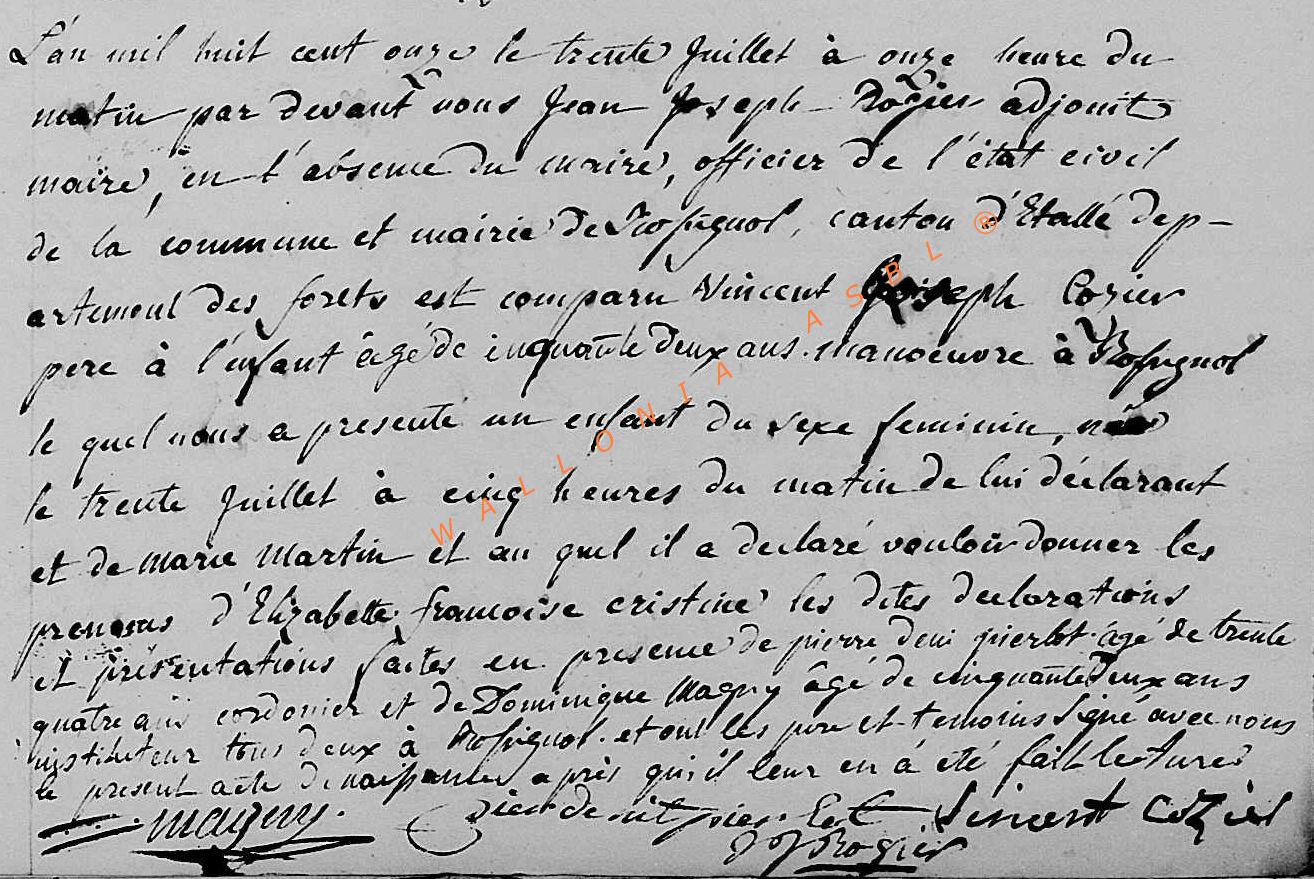 L'án mil huit cent onze le trente Juillet à onze heure du
matin par devant nous Jean Joseph Rogier adjoint
maire, en l'absence du maire, officier de l'état civil
de la commune et mairie de Rossignol, canton d'Etallé dep-
artement des forets est comparu Vincent Joseph Cozier
pere à l'enfant âgé de cinquante deux ans. manoeuvre à Rossignol
le quel nous a presenté un enfant du sexe feminin, née
le trente Juillet à cinq heures du matin de lui déclarant
et de marie Martin et au quel il a declaré vouloir donner les
prenoms d'Elizabette francoise cristine les dites declarations
et présentations faites en presence de pierre deni pierlot âgé de trente
quatre ans cordonier et de Dominique Magny âgé de cinquante deux ans
instituteur tous deux à Rossignol. et ont les pere et temoins signé avec nous
le present acte de naissance après qu'il leur en à été fait lecture
magny. Vincent Cozier
J J Rogier
WALLONIA ASBL ®